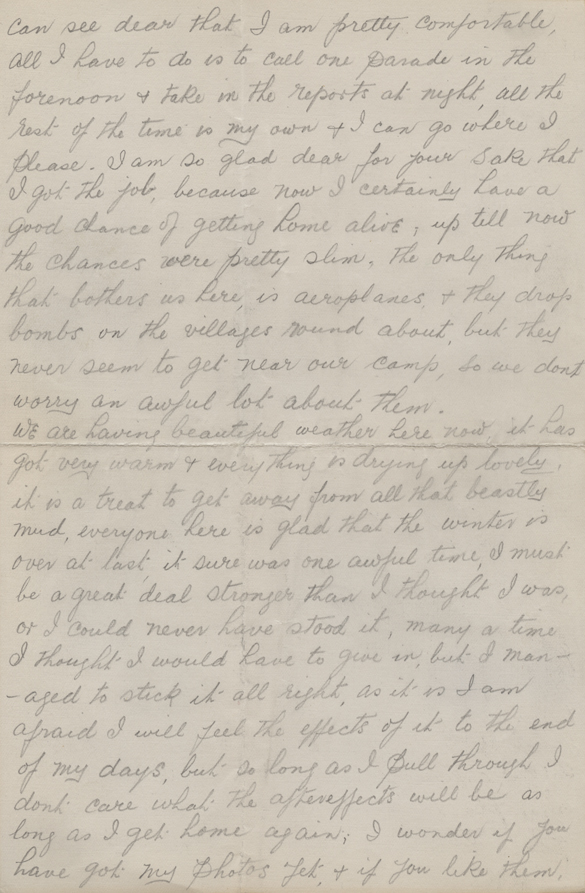 can see dear that I am pretty comfortable,
all I have to do is to call one parade in the
forenoon & take in the reports at night, all the
rest of the time is my own & I can go where I
please. I am so glad dear for your sake that
I got the job, because now I certainly have a
good chance of getting home alive; up till now
the chances were pretty slim. The only thing
that bothers us here, is aeroplanes, & they drop
bombs on the villages round about, but they
never seem to get near our camp, so we dont
worry an awful lot about them.
WE are having beautiful weather here now, it has
got very warm & everything is drying up lovely,
it is a treat to get away from all that beastly
mud, everyone here is glad that the winter is
over at last, it sure was one awful time, I must
be a great deal stronger than I thought I was,
or I could never have stood it, many a time
I thought I would have to give in, but I man-
-aged to stick it all right, as it is I am
afraid I will feel the effects of it to the end
of my days, but so long as I pull through I
dont care what the aftereffects will be as
long as I get home again; I wonder if you
have got my photos yet, & if you like them,